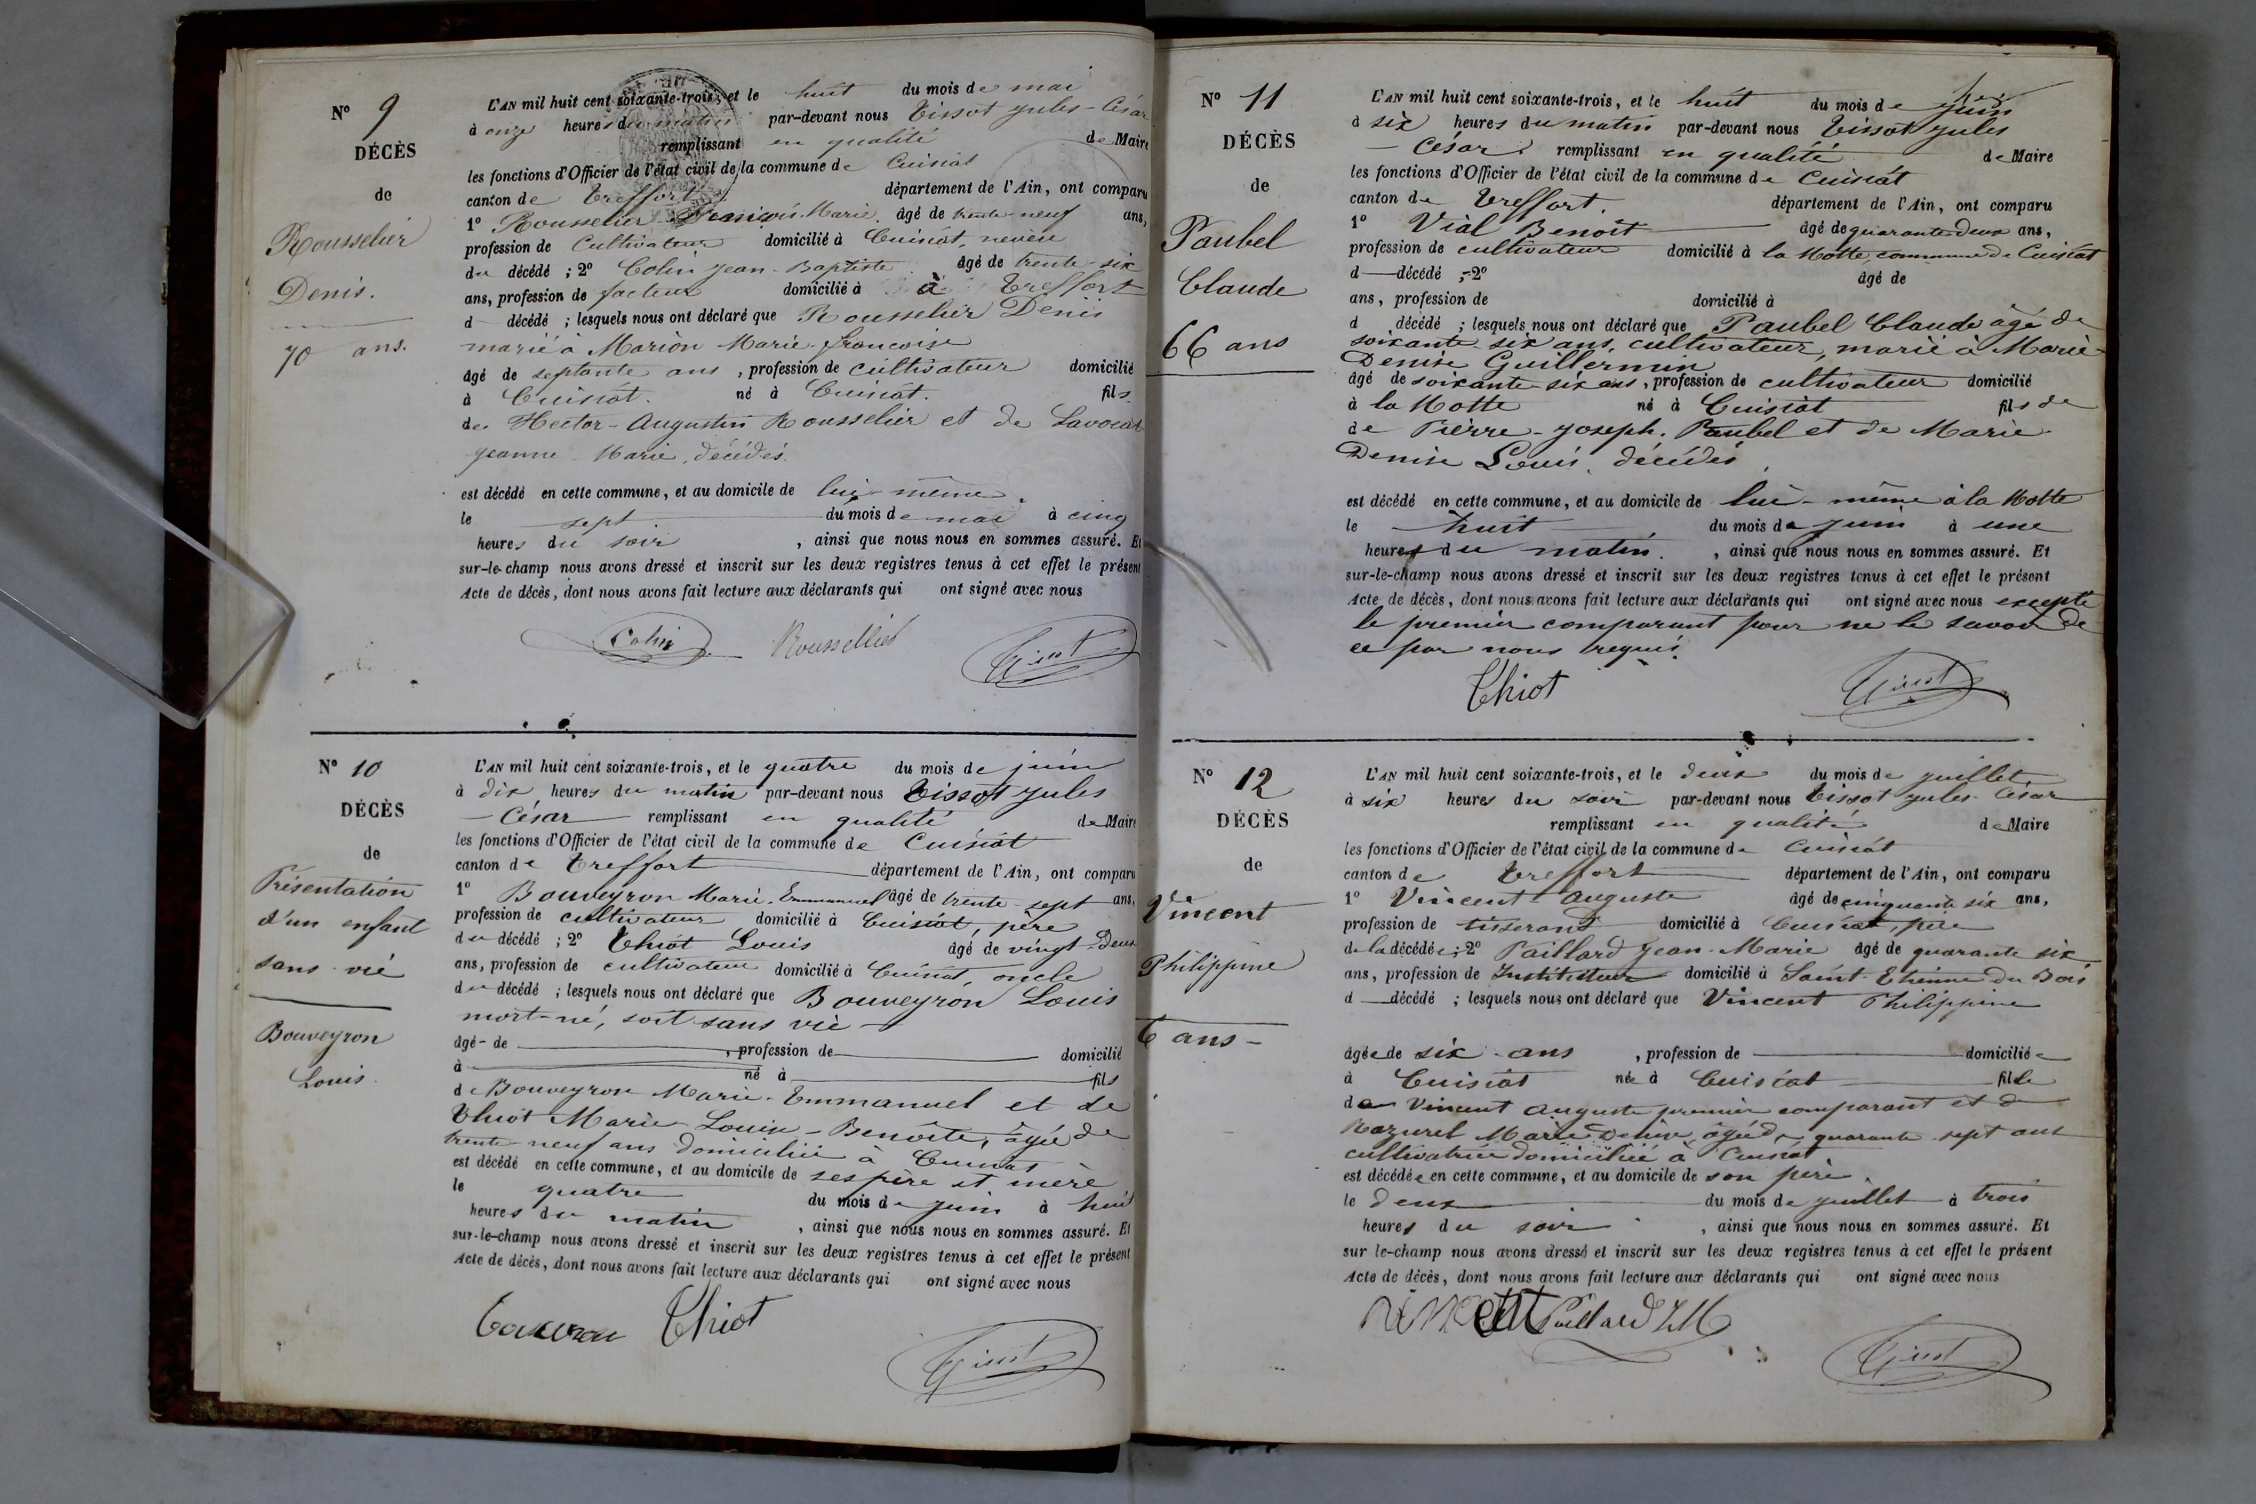 N° 9
DÉCÈS
de
Rousselier
Denis.
70 ans.
L'AN mil huit cent soixante-trois, et le huit du mois de mai
à onze heures du matin par-devant nous Tissot Jules-César
remplissant en qualité de Maire
les fonctions d'Officier de l'état civil de la commune de Cuisiat
canton de Treffort département de l'Ain, ont comparu
1° Rousselier François-Marie. âgé de trente-neuf ans,
profession de Cultivateur domicilié à Cuisiat, neveu
du décédé ; 2° Colin Jean-Baptiste. âgé de trente-six
ans, profession de facteur domicilié à à Treffort
d décédé ; lesquels nous ont déclaré que Rousselier Denis
marié à Marion Marie-françoise
âgé de septante ans, profession de cultivateur domicilié
à Cuisiat. né à Cuisiat. fils
de Hector-Augustin Rousselier et de Lavocat
Jeanne-Marie, décédés.
est décédé en cette commune, et au domicile de lui-même.
le sept du mois de mai à cinq
heures du soir, ainsi que nous nous en sommes assuré. Et
sur-le-champ nous avons dressé et inscrit sur les deux registres tenus à cet effet le présent
Acte de décès, dont nous avons fait lecture aux déclarants qui ont signé avec nous
Colin Roussellier Tissot
N° 10
DÉCÈS
de
Présentation
d'un enfant
sans vie
Bouveyron
Louis.
L'AN mil huit cent soixante-trois, et le quatre du mois de juin
à dix heures du matin par-devant nous Tissot Jules
-César remplissant en qualité de Maire
les fonctions d'Officier de l'état civil de la commune de Cuisiat
canton de Treffort département de l'Ain, ont comparu
1° Bouveyron Marie-Emmanuel âgé de trente-sept ans,
profession de cultivateur domicilié à Cuisiat, père
du décédé ; 2° Thiot Louis âgé de vingt-deux
ans, profession de cultivateur domicilié à Cuisiat, oncle
du décédé ; lesquels nous ont déclaré que Bouveyron Louis
mort-né, soit sans vie
âgé de , profession de domicilié
à né à fils
de Bouveyron Marie-Emmanuel et de
Thiot Marie-Louise-Benoîte, âgée de
trente-neuf ans domiciliée à Cuisiat
est décédé en cette commune, et au domicile de ses père et mère
le quatre du mois de juin à huit
heures du matin, ainsi que nous nous en sommes assuré. Et
sur-le-champ nous avons dressé et inscrit sur les deux registres tenus à cet effet le présent
Acte de décès, dont nous avons fait lecture aux déclarants qui ont signé avec nous
Thiot Tissot
N° 11
DÉCÈS
de
Paubel
Claude
66 ans
L'AN mil huit cent soixante-trois, et le huit du mois de juin
à six heures du matin par-devant nous Tissot Jules
-César. remplissant en qualité de Maire
les fonctions d'Officier de l'état civil de la commune de Cuisiat
canton de Treffort. département de l'Ain, ont comparu
1° Vial Benoît âgé de quarante-deux ans,
profession de cultivateur domicilié à la Motte, commune de Cuisiat
d décédé ; 2° âgé de
ans, profession de domicilié à
d décédé ; lesquels nous ont déclaré que Paubel Claude âgé de
soixante-six ans, cultivateur, marié à Marie-
Denise Guillermin
âgé de soixante-six ans, profession de cultivateur domicilié
à la Motte né à Cuisiat fils de
de Pierre-Joseph. Paubel et de Marie-
Denise Louis, décédés
est décédé en cette commune, et au domicile de lui-même à la Motte
le huit du mois de juin à une
heures du matin., ainsi que nous nous en sommes assuré. Et
sur-le-champ nous avons dressé et inscrit sur les deux registres tenus à cet effet le présent
Acte de décès, dont nous avons fait lecture aux déclarants qui ont signé avec nous excepté
le premier comparant pour ne le savoir de
ce par nous requis.
Thiot Tissot
N° 12
DÉCÈS
de
Vincent
Philippine
6 ans
L'AN mil huit cent soixante-trois, et le deux du mois de juillet
à six heures du soir par-devant nous Tissot Jules-César
remplissant en qualité de Maire
les fonctions d'Officier de l'état civil de la commune de Cuisiat
canton de Treffort département de l'Ain, ont comparu
1° Vincent Auguste âgé de cinquante-six ans,
profession de tisserand domicilié à Cuisiat, père
de la décédée ; 2° Paillard Jean-Marie âgé de quarante-six
ans, profession de Instituteur domicilié à Saint-Etienne du Bois
d décédé ; lesquels nous ont déclaré que Vincent Philippine
âgée de six ans, profession de domiciliée
à Cuisiat née à Cuisiat fille
de Vincent Auguste premier comparant et de
Marie Denise, âgée de quarante-sept ans
cultivatrice domiciliée à Cuisiat.
est décédée en cette commune, et au domicile de son père.
le deux du mois de juillet à trois
heures du soir, ainsi que nous nous en sommes assuré. Et
sur le-champ nous avons dressé et inscrit sur les deux registres tenus à cet effet le présent
Acte de décès, dont nous avons fait lecture aux déclarants qui ont signé avec nous
Vincent Paillard JM Tissot